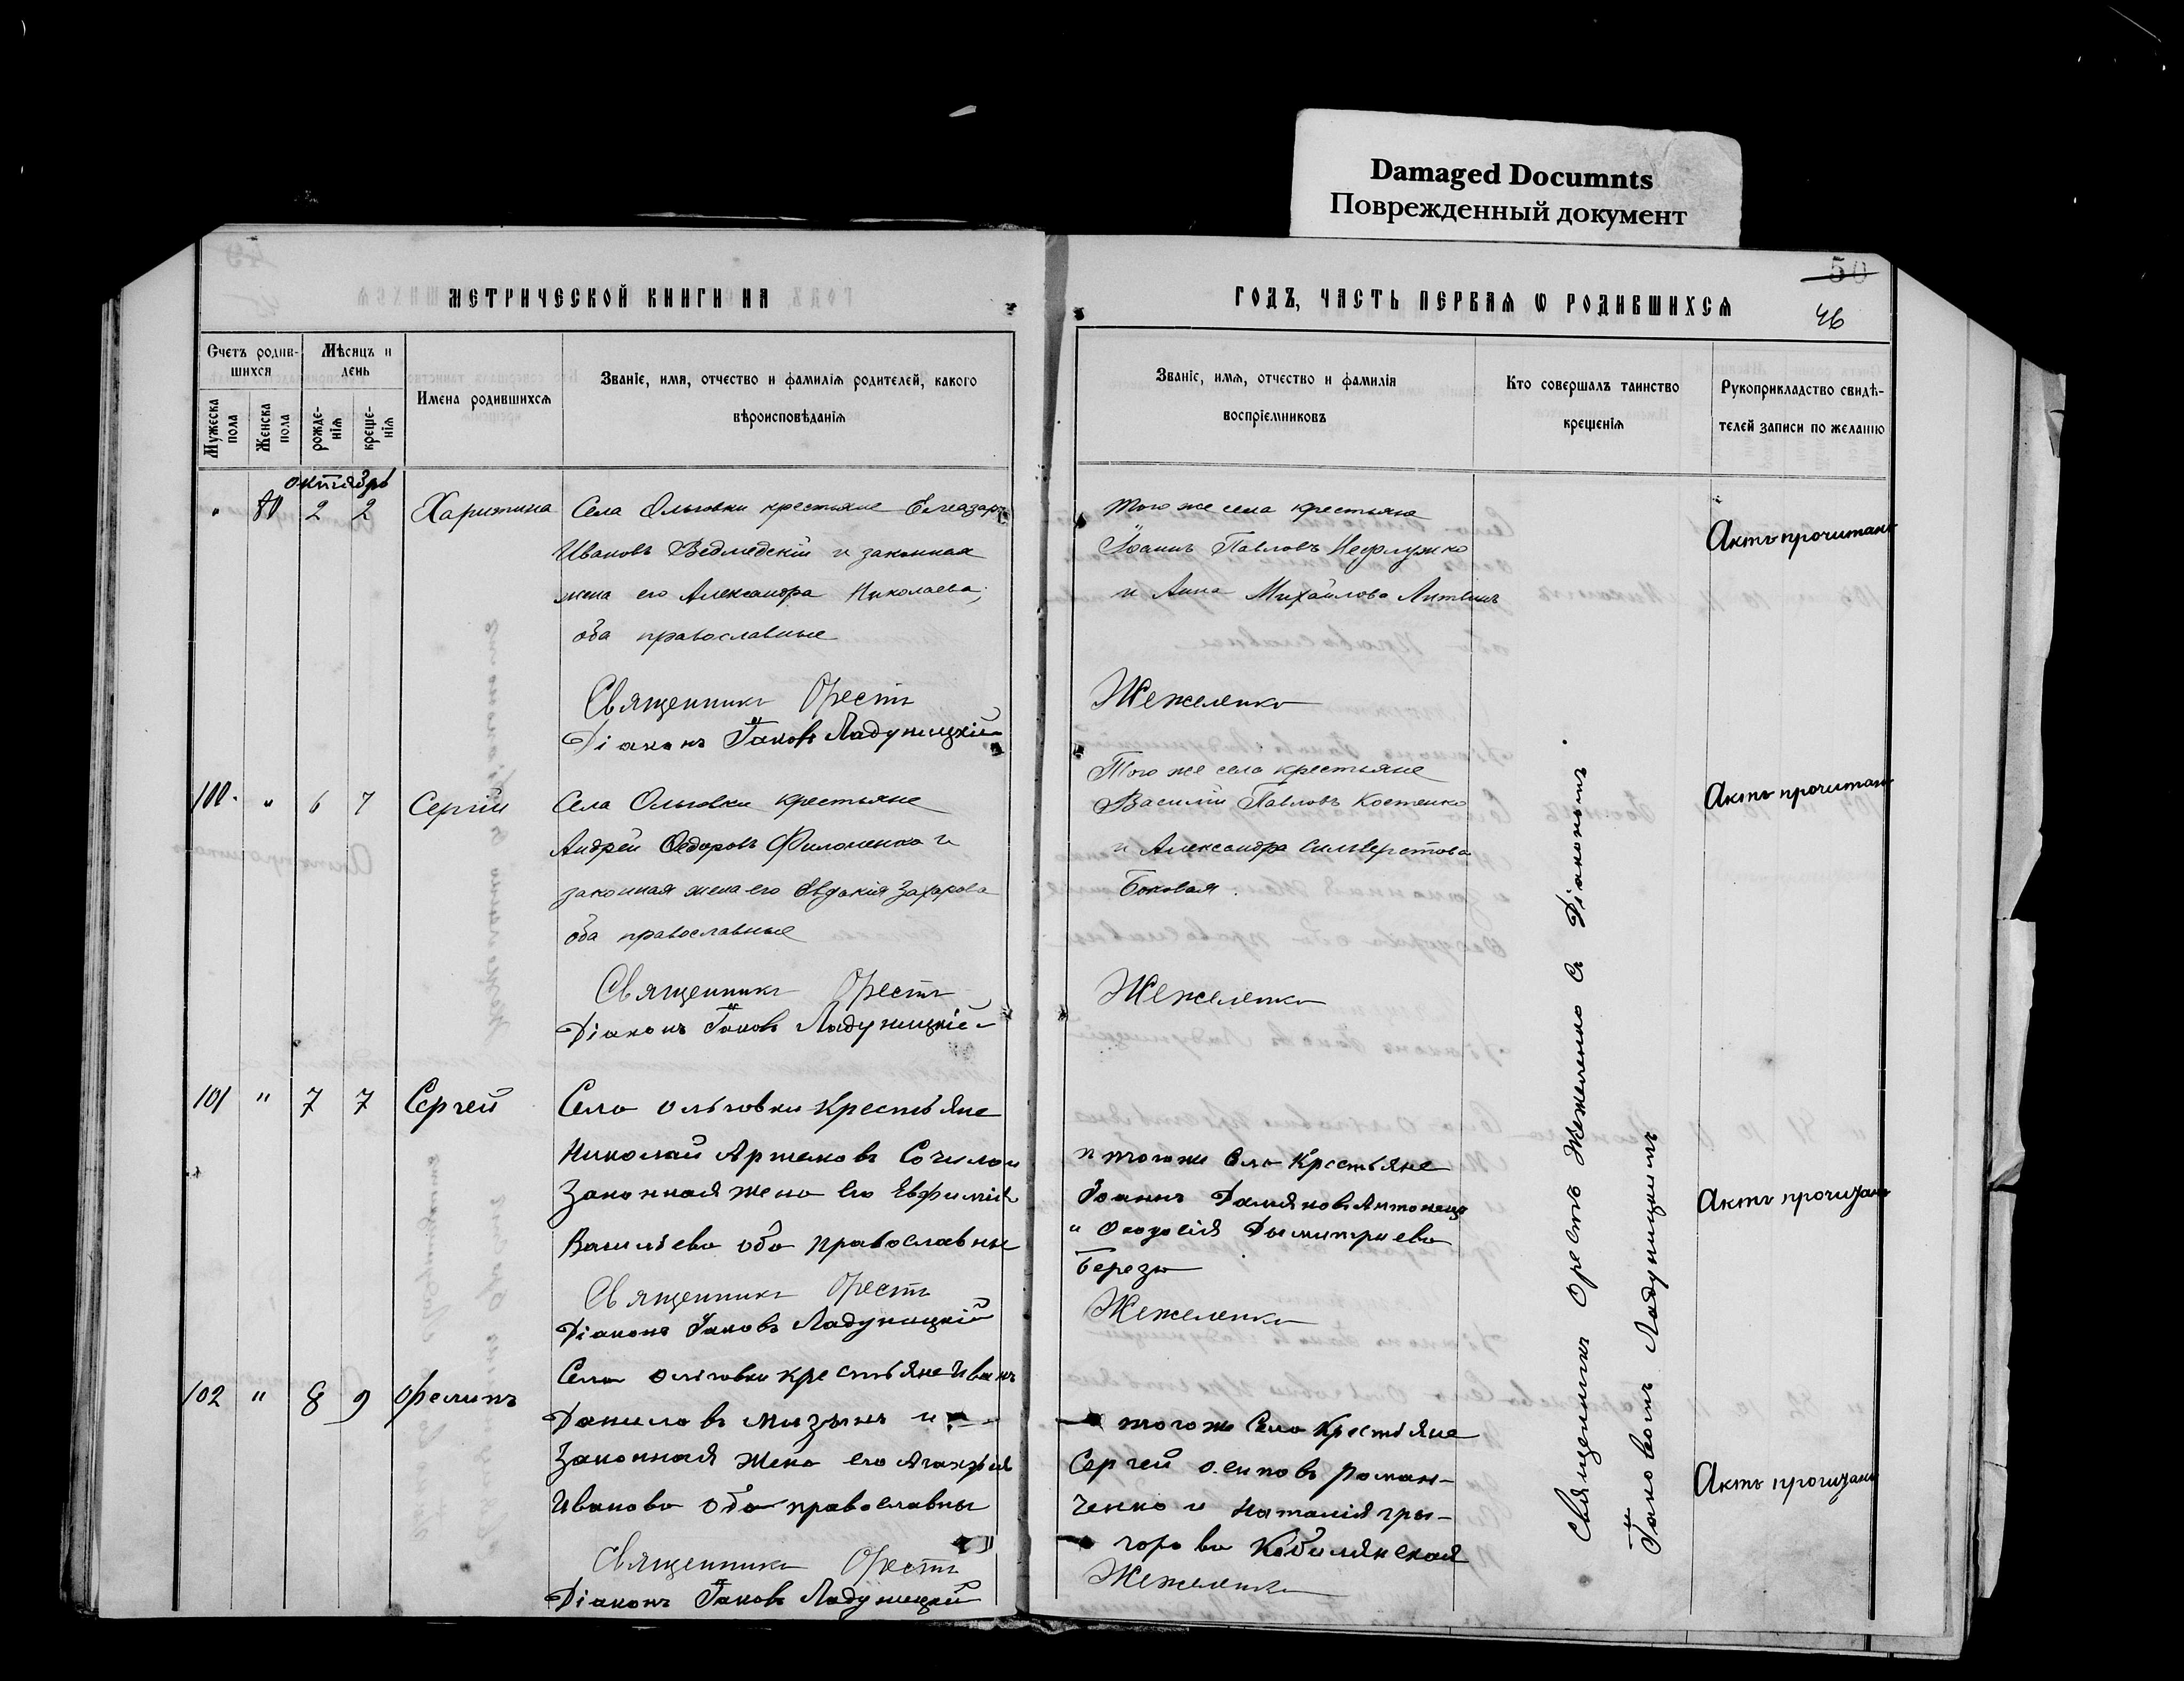 Damaged Documnts
Поврежденный документ
50
46
МЕТРИЧЕСКОЙ КНИГИ НА
ГОДЪ, ЧАСТЬ ПЕРВАЯ Ѡ РОДИВШИХСЯ
Счетъ родив-
шихся
Мѣсяцъ и
день
Мужеска
пола
Женска
пола
рожде-
нія
креще-
нія
Имена родившихся
Званіе, имя, отчество и фамилія родителей, какого
вѣроисповѣданія
Званіе, имя, отчество и фамилія
воспріемниковъ
Кто совершалъ таинство
крещенія
Рукоприкладство свидѣ-
телей записи по желанію
октябрь
" 80 2 2 Харитина
Села Ольговки крестьяне Елеазаръ
Ивановъ Ведмедскій и законная
жена его Александра Николаева,
оба православные
Священникъ Орестъ
Діаконъ Іаковъ Ладуницкій
того же села крестьяне
Іоаннъ Павловъ
и Анна Михайлова Литвинъ
Жежеленко
Актъ прочитанъ
100. " 6 7 Сергій
Села Ольговки крестьяне
Андрей Ѳедоровъ Филоненко и
законная жена его Евдокія Захарова
оба православные
Священникъ Орестъ
Діаконъ Іаковъ Ладуницкій
Того же села крестьяне
Василій Павловъ Костенко
и Александра Сильверстова
Боковая.
Жежеленко
Актъ прочитанъ
101 " 7 7 Сергей
Села ольговки крестьяне
Николай Артемовъ
Законная жена его Евфимія
Васильева оба православные
Священникъ Орестъ
Діаконъ Іаковъ Ладуницкій
тогоже Села Крестьяне
Іоаннъ Даміяновъ
и Ѳеодосія Дымитриева
Береза
Жежеленко
Актъ прочитанъ
102 " 8 9 Филипъ
Села ольговки крестьяне Иванъ
Даниловъ Мизынъ и
Законная жена его Агафия
Иванова оба православны
Священникъ Орестъ
Діаконъ Іаковъ Ладуницкій
тогоже Села Крестьяне
Сергей осиповъ роман-
ченко и Наталія гры-
горова Кобилянская
Жежеленко
Актъ прочитанъ
Священникъ Орестъ Жежеленко съ Діакономъ
Іаковомъ Ладуницкимъ